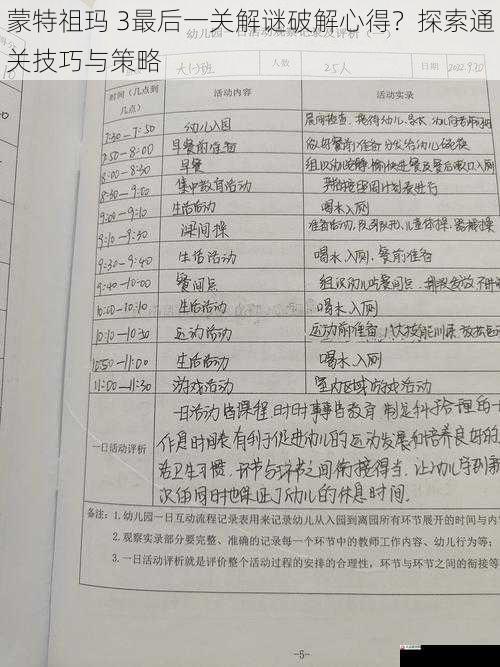 蒙特祖玛 3最后一关解谜破解心得？探索通
关技巧与策略
幼儿园一日活动观察记录及评析（一）
大(一)班 人数 25人 日期 2022.9.20
时间（几点到几点） 活动内容 活动实录
7:30-7:50 幼儿入园
7:50-8:00 早餐前准备
8:00-8:30 早餐
8:30-9:00 集中教育活动
9:00-9:10 生活活动 喝水、入厕
9:10-9:30 课间操
9:30-9:40 生活活动 喝水、入厕、餐前准备
9:40-10:00 餐间点
10:00-10:10 生活活动 喝水、入厕
10:10-10:50 运动活动
10:50-11:00 生活活动 喝水、入厕
11:00-11:30 游戏活动 室内区域游戏活动
一日活动评析
一日活动皆课程，时时事事皆教育，制定科学合理的一
作息时间表有利于促进幼儿的运动发展和培养良好的
活卫生习惯，环节与环节之间衔接得当，让幼儿
次使用时也保证了幼儿的休息时间。
备注：1.幼儿园一日互动流程记录表用来记录幼儿从入园到离园所有环节展开的时间与内
2.观察实录部分要完整、准确的记录每一个环节中的教师工作内容、幼儿行为等；
3.一日活动评析就是评价整个活动过程的安排的合理性，环节与环节之间的衔接等
-5-